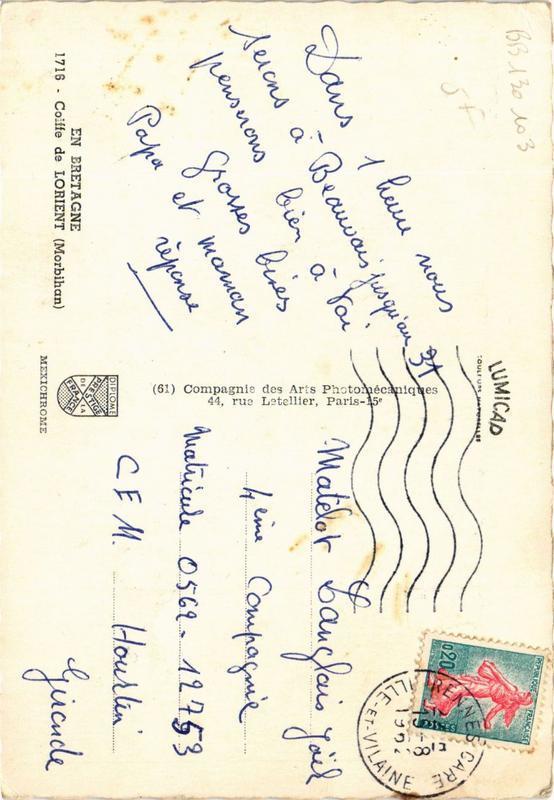 EN BRETAGNE
1716 - Coiffe de LORIENT (Morbihan)
MEXICHROME
EDITIONS
DE LA
FRANCE
Dans 1 heure nous
serons à Beauvais jusqu'au 31
penserons bien à toi
Grosses bises
Papa et maman
réponse
(61) Compagnie des Arts Photomécaniques
44, rue Letellier, Paris-15e
LUMICAP
BB 130 103
5F
RENNES GARE
ILLE-ET-VILAINE
0,20
REPUBLIQUE FRANÇAISE
Matelot Langlais Joël
4ème Compagnie
Matricule 0562-12753
C.F.M. Hourtin
Gironde